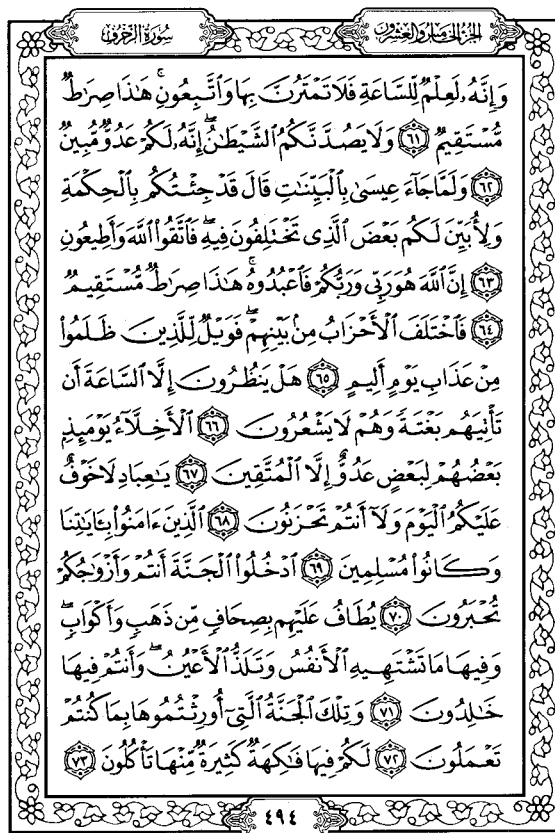 سُورَةُ الزُّخْرُفِ
الجُزْءُ الخَامِسُ وَالعِشْرُونَ
وَإِنَّهُۥ لَعِلْمٌ لِّلسَّاعَةِ فَلَا تَمْتَرُنَّ بِهَا وَٱتَّبِعُونِ ۚ هَٰذَا صِرَٰطٌ
مُّسْتَقِيمٌ ٦١ وَلَا يَصُدَّنَّكُمُ ٱلشَّيْطَٰنُ ۖ إِنَّهُۥ لَكُمْ عَدُوٌّ مُّبِينٌ
٦٢ وَلَمَّا جَآءَ عِيسَىٰ بِٱلْبَيِّنَٰتِ قَالَ قَدْ جِئْتُكُم بِٱلْحِكْمَةِ
وَلِأُبَيِّنَ لَكُم بَعْضَ ٱلَّذِى تَخْتَلِفُونَ فِيهِ ۖ فَٱتَّقُوا۟ ٱللَّهَ وَأَطِيعُونِ
٦٣ إِنَّ ٱللَّهَ هُوَ رَبِّى وَرَبُّكُمْ فَٱعْبُدُوهُ ۚ هَٰذَا صِرَٰطٌ مُّسْتَقِيمٌ
٦٤ فَٱخْتَلَفَ ٱلْأَحْزَابُ مِنۢ بَيْنِهِمْ ۖ فَوَيْلٌ لِّلَّذِينَ ظَلَمُوا۟
مِنْ عَذَابِ يَوْمٍ أَلِيمٍ ٦٥ هَلْ يَنظُرُونَ إِلَّا ٱلسَّاعَةَ أَن
تَأْتِيَهُم بَغْتَةً وَهُمْ لَا يَشْعُرُونَ ٦٦ ٱلْأَخِلَّآءُ يَوْمَئِذٍۭ
بَعْضُهُمْ لِبَعْضٍ عَدُوٌّ إِلَّا ٱلْمُتَّقِينَ ٦٧ يَٰعِبَادِ لَا خَوْفٌ
عَلَيْكُمُ ٱلْيَوْمَ وَلَآ أَنتُمْ تَحْزَنُونَ ٦٨ ٱلَّذِينَ ءَامَنُوا۟ بِـَٔايَٰتِنَا
وَكَانُوا۟ مُسْلِمِينَ ٦٩ ٱدْخُلُوا۟ ٱلْجَنَّةَ أَنتُمْ وَأَزْوَٰجُكُمْ
تُحْبَرُونَ ٧٠ يُطَافُ عَلَيْهِم بِصِحَافٍ مِّن ذَهَبٍ وَأَكْوَابٍ ۖ
وَفِيهَا مَا تَشْتَهِيهِ ٱلْأَنفُسُ وَتَلَذُّ ٱلْأَعْيُنُ ۖ وَأَنتُمْ فِيهَا
خَٰلِدُونَ ٧١ وَتِلْكَ ٱلْجَنَّةُ ٱلَّتِىٓ أُورِثْتُمُوهَا بِمَا كُنتُمْ
تَعْمَلُونَ ٧٢ لَكُمْ فِيهَا فَٰكِهَةٌ كَثِيرَةٌ مِّنْهَا تَأْكُلُونَ ٧٣
٤٩٤